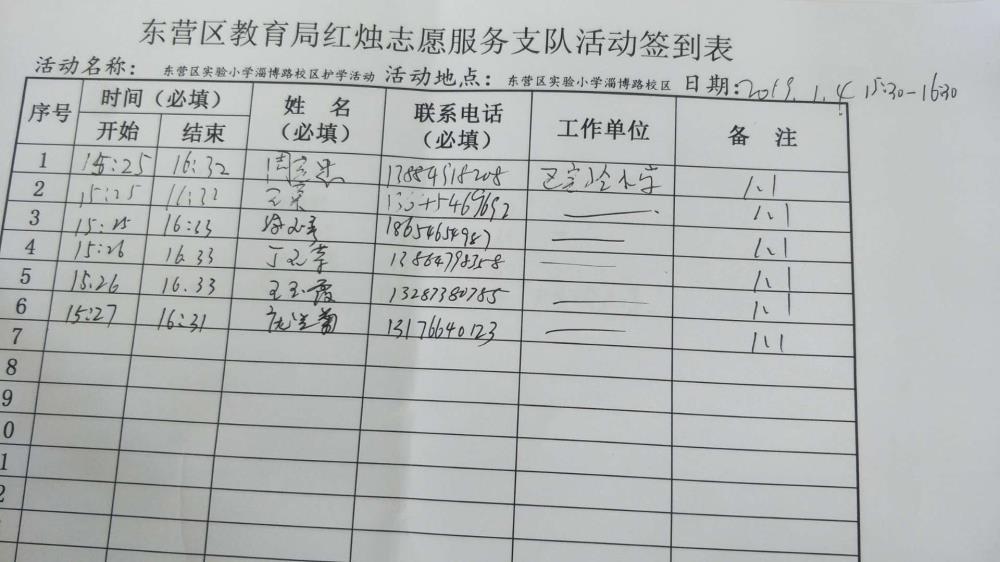 东营区教育局红烛志愿服务支队活动签到表
活动名称: 东营区实验小学淄博路校区护学活动 活动地点: 东营区实验小学淄博路校区 日期: 2019.1.4 15:30-16:30
序号 时间(必填) 姓 名 (必填) 联系电话 (必填) 工作单位 备 注
开始 结束
1 15:25 16:32 区实验小学 1,1
2 15:25 16:32 1,1
3 15:25 16:33 18654654987 1,1
4 15:26 16.33 13864798358 1,1
5 15:26 16.33 王玉霞 13287380785 1,1
6 15:27 16:31 13176640123 1,1
7
8
9
0
1
2